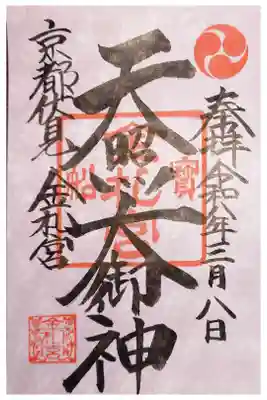 奉拝 令和八年三月八日
天照大御神
京都伏見 金札宮